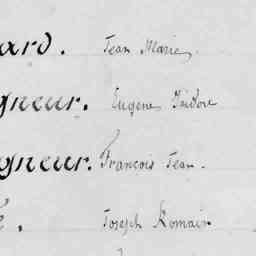 ard. Jean Marie.
gneur. Eugène Isidore
gneur. François Jean.
. Joseph Romain